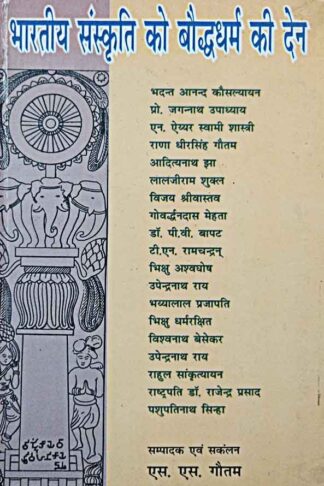 भारतीय संस्कृति को बौद्धधर्म की देन
भदन्त आनन्द कौसल्यायन
प्रो. जगन्नाथ उपाध्याय
एन. ऐय्यर स्वामी शास्त्री
राणा धीरसिंह गौतम
आदित्यनाथ झा
लालजीराम शुक्ल
विजय श्रीवास्तव
गोवर्द्धनदास मेहता
डॉ. पी.वी. बापट
टी.एन. रामचन्द्रन्
भिक्षु अश्वघोष
उपेन्द्रनाथ राय
भय्यालाल प्रजापति
भिक्षु धर्मरक्षित
विश्वनाथ बेसेकर
उपेन्द्रनाथ राय
राहुल सांकृत्यायन
राष्ट्रपति डॉ. राजेन्द्र प्रसाद
पशुपतिनाथ सिन्हा
सम्पादक एवं सकंलन
एस. एस. गौतम